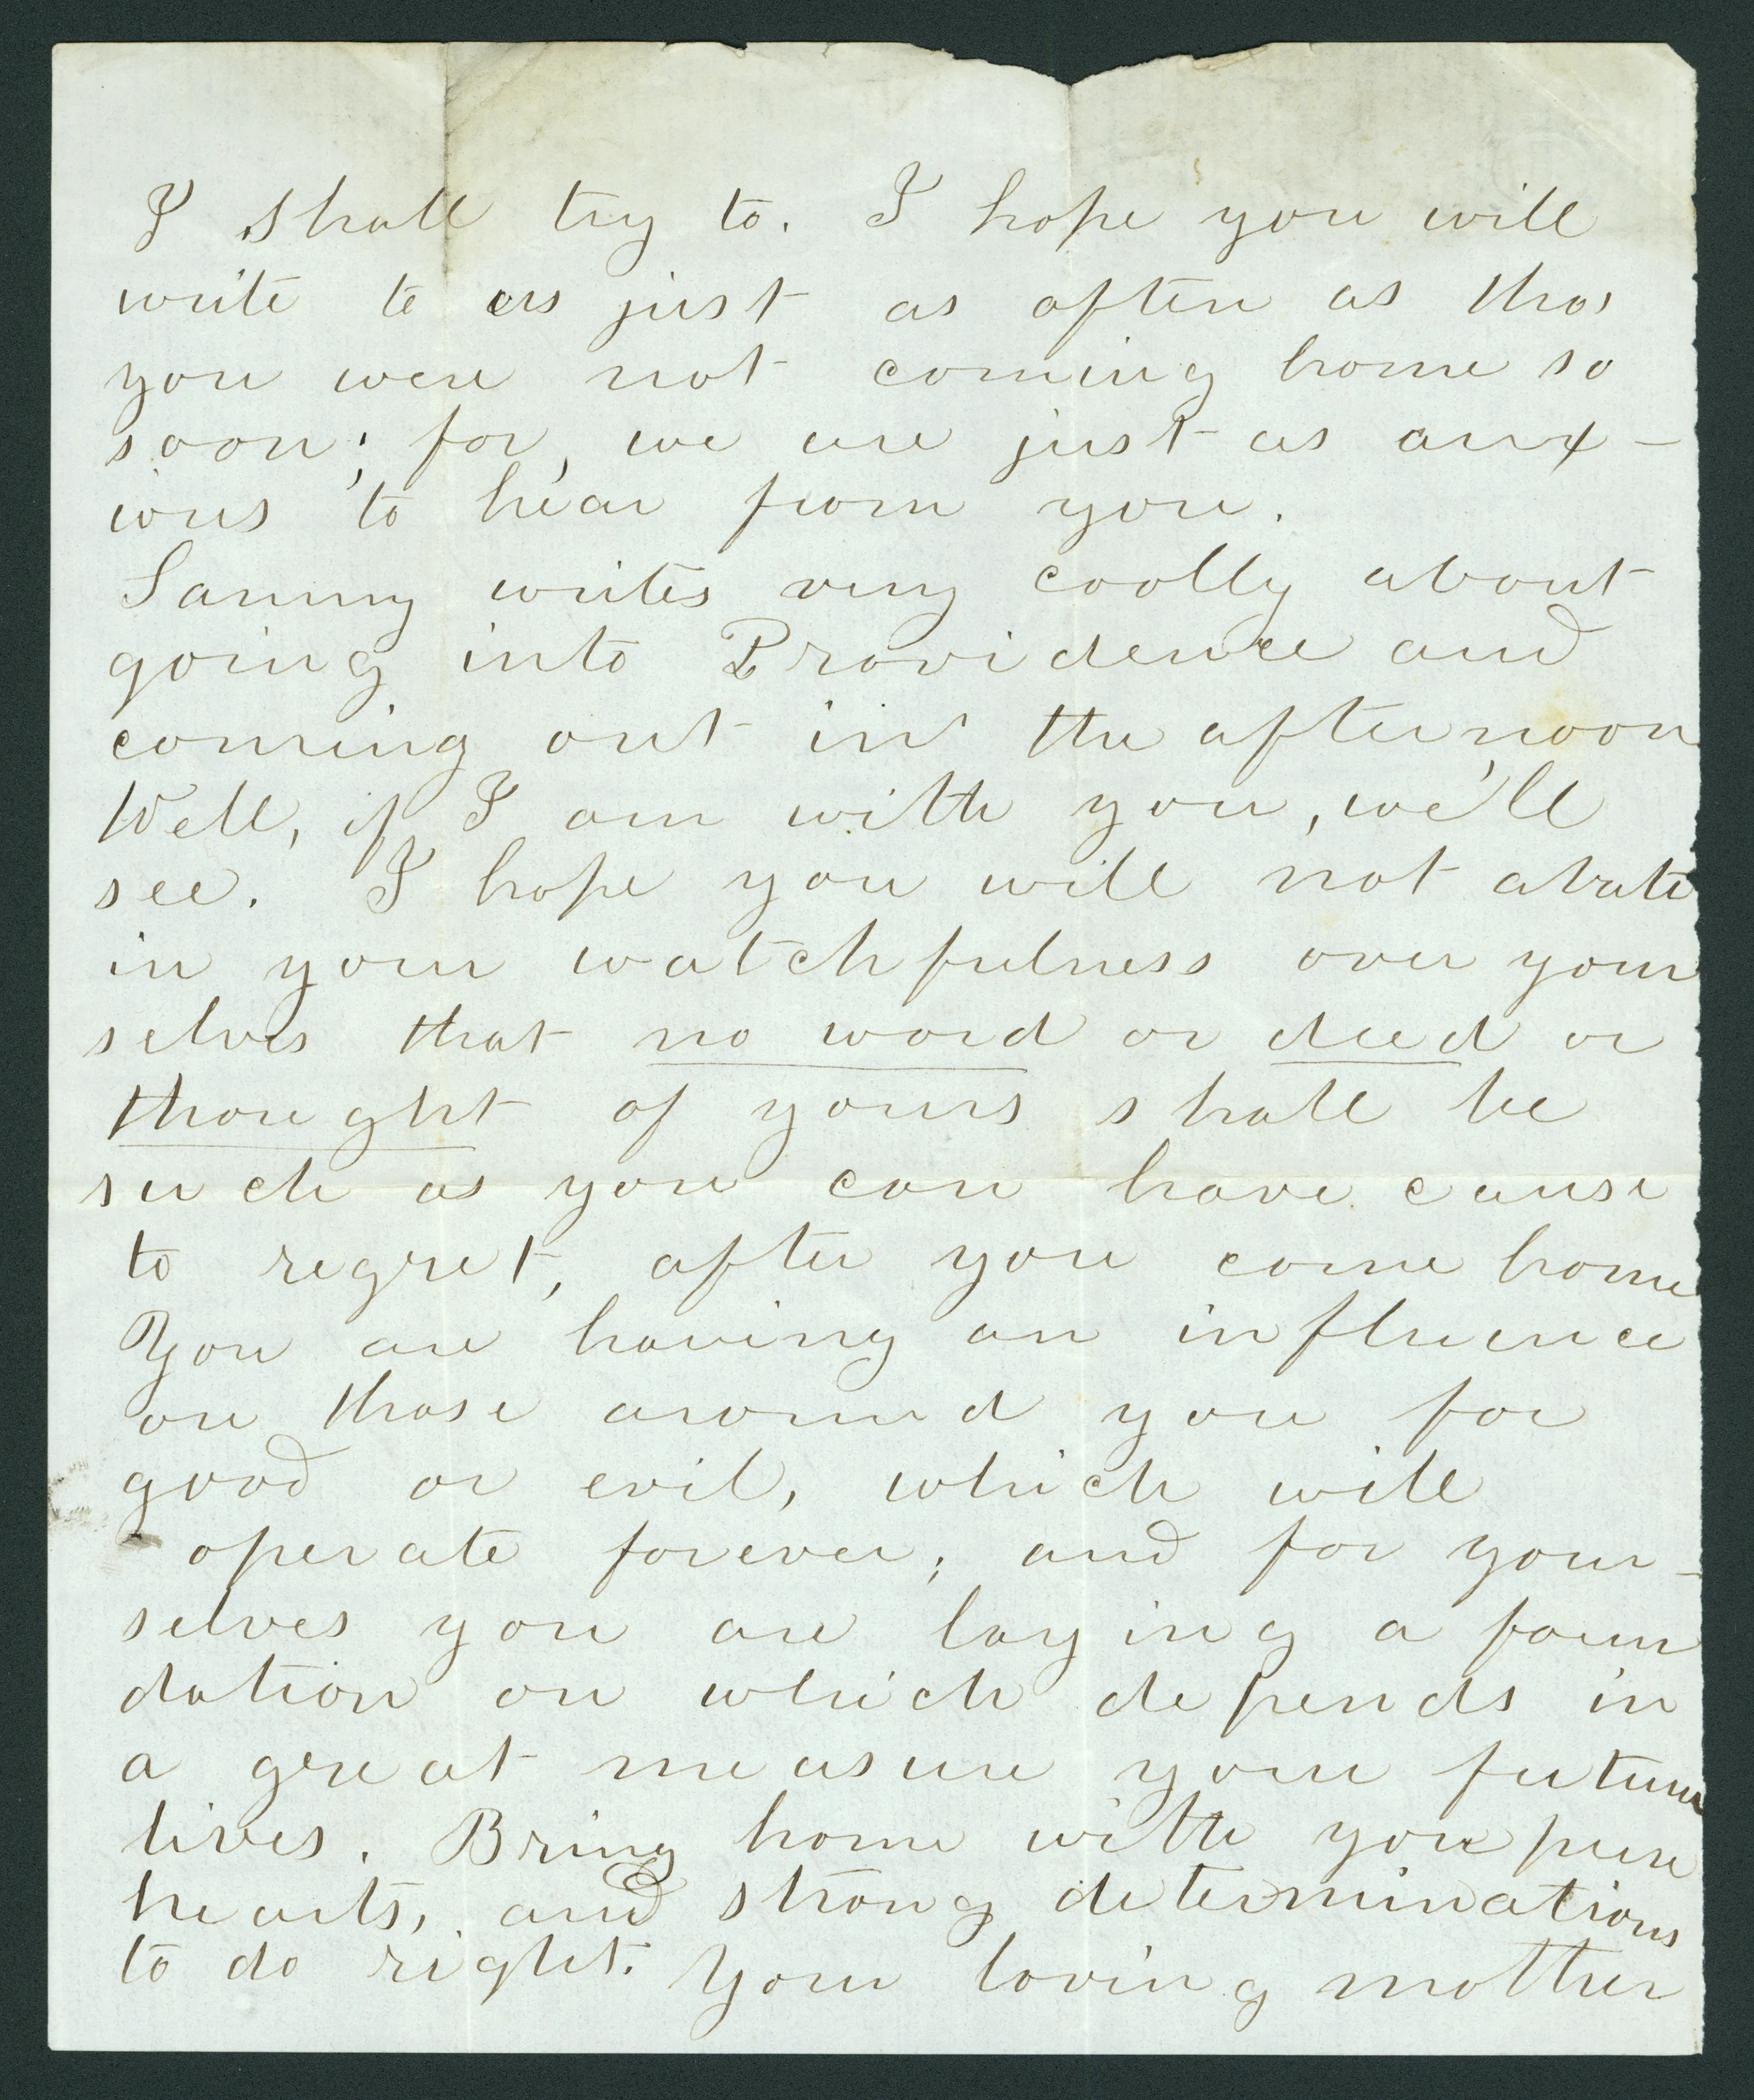 I shall try to. I hope you will
write to us just as often as tho'
you were not coming home so
soon; for, we are just as anx-
ious to hear from you.
Sammy writes very coolly about
going into Providence and
coming out in the afternoon
Well, if I am with you, we'll
see. I hope you will not abate
in your watchfulness over your
selves that no word or deed or
thought of yours shall be
such as you can have cause
to regret, after you come home
You are having an influence
on those around you for
good or evil, which will
operate forever; and for your-
selves you are laying a foun
dation on which depends in
a great measure your future
lives. Bring home with you pure
hearts, and strong determinations
to do right. Your loving mother